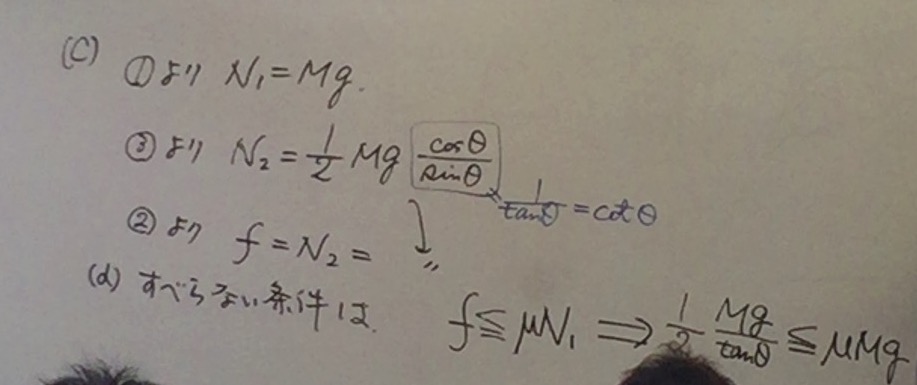 (C) ①より N₁=Mg.
③より N₂ = 1/2 Mg cosθ/sinθ
1/tanθ = cotθ
②より f = N₂ = 〃
(d) すべらない条件は. f ≦ μN₁ ⟹ 1/2 Mg/tanθ ≦ μMg